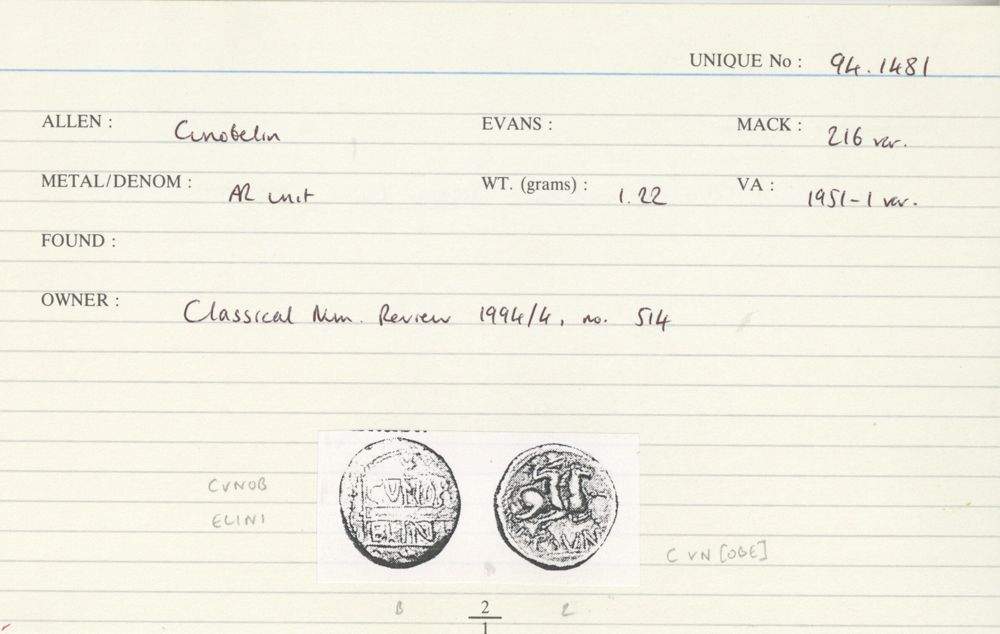 UNIQUE No : 94.1481
ALLEN : Cunobelin EVANS : MACK : 216 var.
METAL/DENOM : AR unit WT. (grams) : 1.22 VA : 1951-1 var.
FOUND :
OWNER : Classical Num. Review 1994/4, no. 514
CVNOB
ELINI
CUNO
ELIN
CVN
C VN [OBE]
2
1